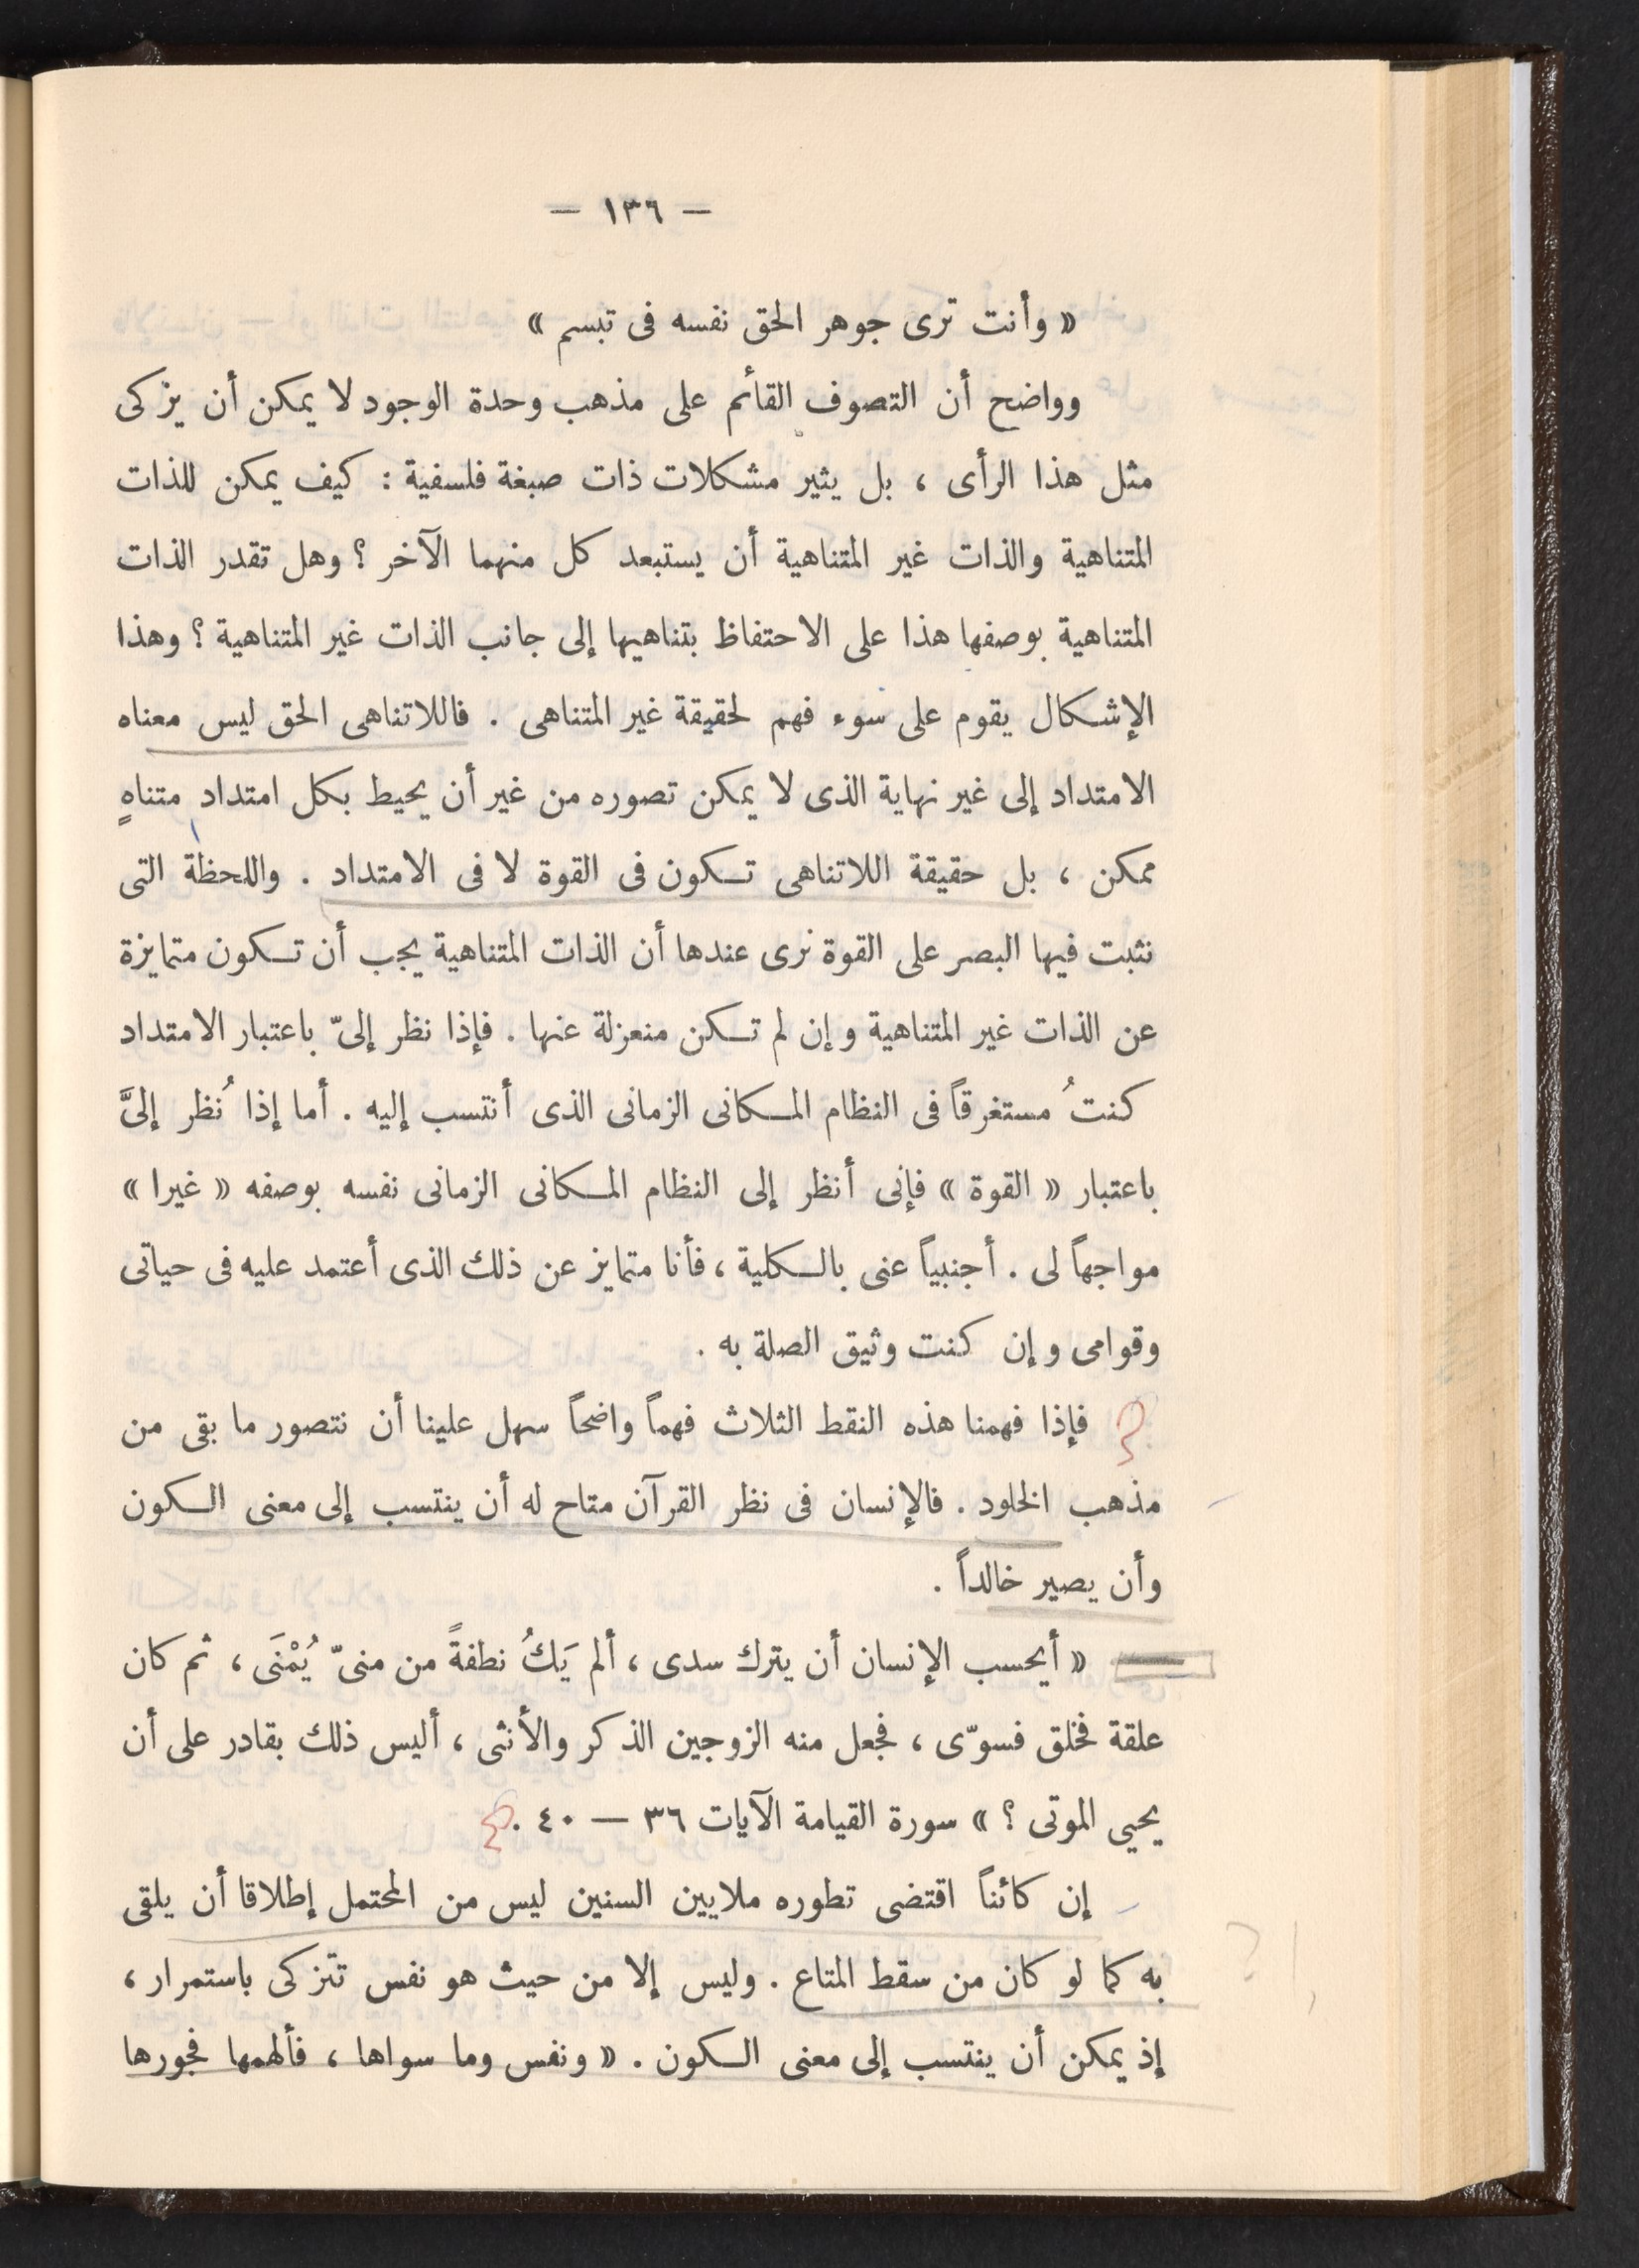 — ١٣٦ —
« وأنت ترى جوهر الحق نفسه فى تبسم »
وواضح أن التصوف القائم على مذهب وحدة الوجود لا يمكن أن يزكى
مثل هذا الرأى ، بل يثير مشكلات ذات صبغة فلسفية : كيف يمكن للذات
المتناهية والذات غير المتناهية أن يستبعد كل منهما الآخر ؟ وهل تقدر الذات
المتناهية بوصفها هذا على الاحتفاظ بتناهيها إلى جانب الذات غير المتناهية ؟ وهذا
الإشكال يقوم على سوء فهم لحقيقة غير المتناهى . فاللاتناهى الحق ليس معناه
الامتداد إلى غير نهاية الذى لا يمكن تصوره من غير أن يحيط بكل امتداد متناهٍ
ممكن ، بل حقيقة اللاتناهى تكون فى القوة لا فى الامتداد . واللحظة التى
نثبت فيها البصر على القوة نرى عندها أن الذات المتناهية يجب أن تكون متمايزة
عن الذات غير المتناهية وإن لم تكن منعزلة عنها . فإذا نظر إلىّ باعتبار الامتداد
كنتُ مستغرقاً فى النظام المكانى الزمانى الذى أنتسب إليه . أما إذا نُظر إلىَّ
باعتبار « القوة » فإنى أنظر إلى النظام المكانى الزمانى نفسه بوصفه « غيرا »
مواجهاً لى . أجنبياً عنى بالكلية ، فأنا متمايز عن ذلك الذى أعتمد عليه فى حياتى
وقوامى وإن كنت وثيق الصلة به .
فإذا فهمنا هذه النقط الثلاث فهماً واضحاً سهل علينا أن نتصور ما بقى من
مذهب الخلود . فالإنسان فى نظر القرآن متاح له أن ينتسب إلى معنى الكون
وأن يصير خالداً .
« أيحسب الإنسان أن يترك سدى ، ألم يَكُ نطفةً من منىّ يُمْنَى ، ثم كان
علقة فخلق فسوّى ، فجعل منه الزوجين الذكر والأنثى ، أليس ذلك بقادر على أن
يحيى الموتى ؟ » سورة القيامة الآيات ٣٦ — ٤٠ .
إن كائناً اقتضى تطوره ملايين السنين ليس من المحتمل إطلاقا أن يلقى
به كما لو كان من سقط المتاع . وليس إلا من حيث هو نفس تتزكى باستمرار ،
إذ يمكن أن ينتسب إلى معنى الكون . « ونفس وما سواها ، فألهمها فجورها